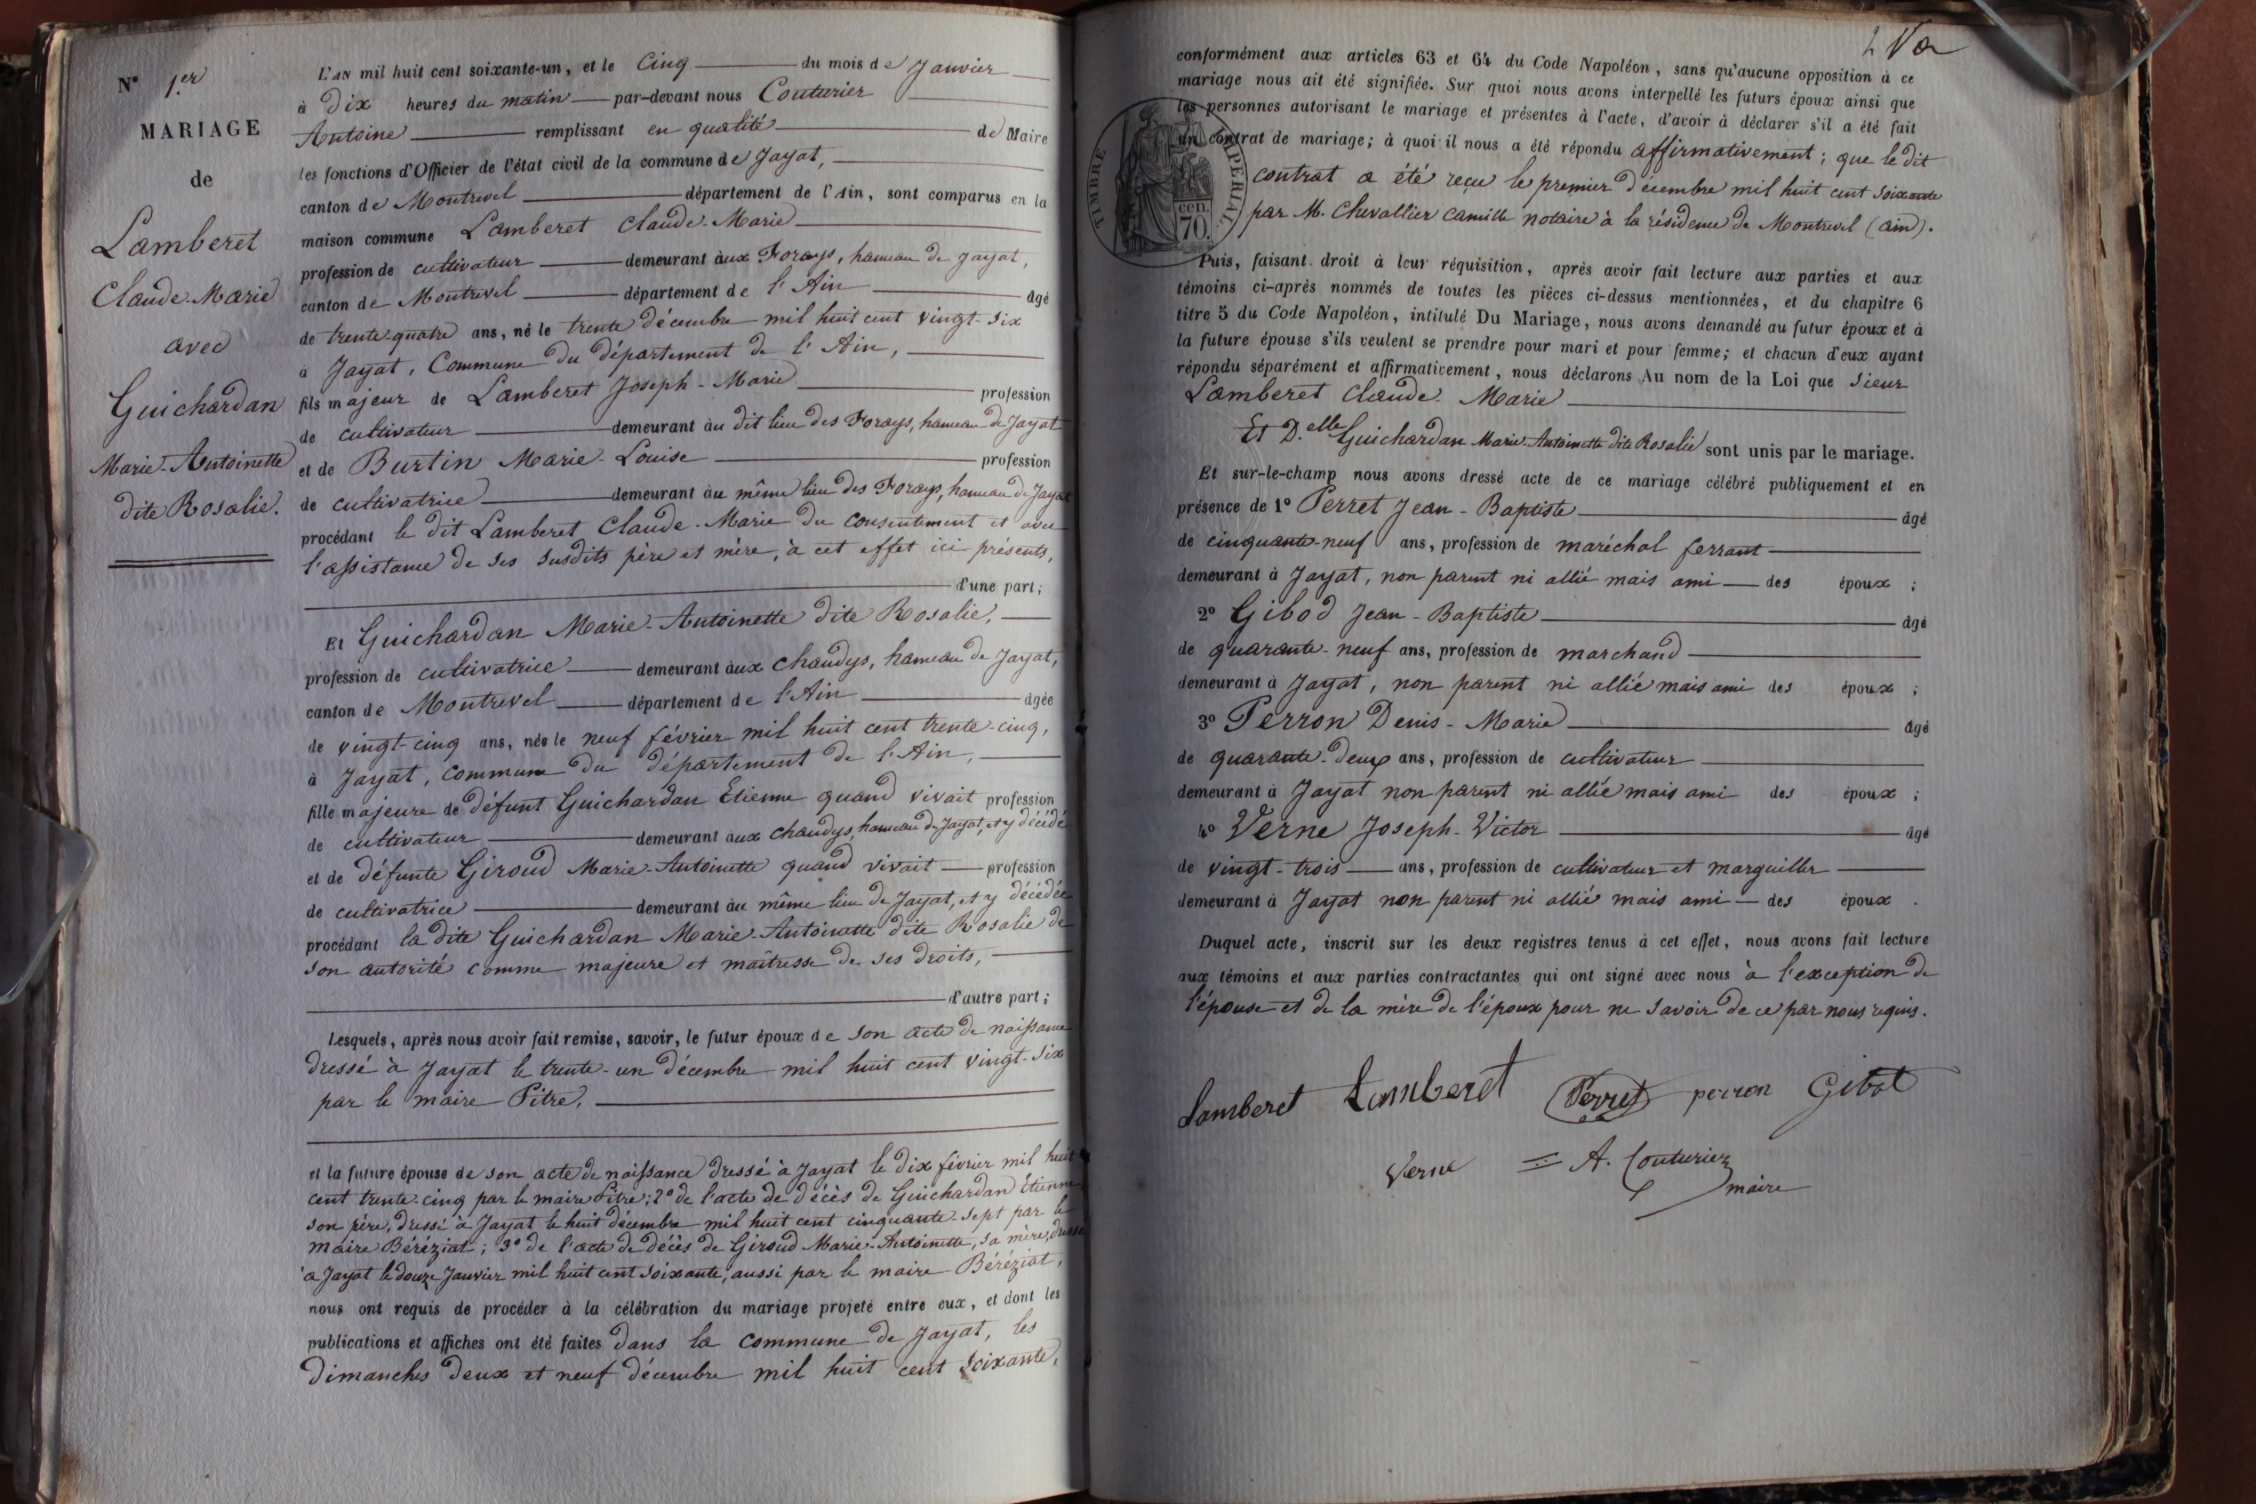 N° 1.er
MARIAGE
de
Lamberet
Claude-Marie
avec
Guichardan
Marie-Antoinette
dite Rosalie.
L'AN mil huit cent soixante-un, et le Cinq du mois de Janvier
à Dix heures du matin par-devant nous Couturier
Antoine remplissant en qualité de Maire
les fonctions d'Officier de l'état civil de la commune de Jayat,
canton de Montrevel département de l'Ain, sont comparus en la
maison commune Lamberet Claude-Marie
profession de cultivateur demeurant aux Forays, hameau de Jayat,
canton de Montrevel département de l'Ain âgé
de trente-quatre ans, né le trente décembre mil huit cent vingt-six
à Jayat, Commune du département de l'Ain,
fils majeur de Lamberet Joseph-Marie profession
de cultivateur demeurant au dit lieu des Forays, hameau de Jayat
et de Burtin Marie-Louise profession
de cultivatrice demeurant au même lieu des Forays, hameau de Jayat
procédant le dit Lamberet Claude-Marie du consentement et avec
l'assistance de ses susdits père et mère, à cet effet ici présents,
d'une part;
Et Guichardan Marie-Antoinette dite Rosalie,
profession de cultivatrice demeurant aux Chaudys, hameau de Jayat,
canton de Montrevel département de l'Ain âgée
de vingt-cinq ans, née le neuf février mil huit cent trente-cinq,
à Jayat, commune du département de l'Ain,
fille majeure de défunt Guichardan Etienne quand vivait profession
de cultivateur demeurant aux Chaudys, hameau de Jayat, et y décédé
et de défunte Giroud Marie-Antoinette quand vivait profession
de cultivatrice demeurant au même lieu de Jayat, et y décédée
procédant la dite Guichardan Marie-Antoinette dite Rosalie de
son autorité comme majeure et maîtresse de ses droits,
d'autre part;
Lesquels, après nous avoir fait remise, savoir, le futur époux de son acte de naissance
dressé à Jayat le trente-un décembre mil huit cent vingt-six
par le maire Pitre,
et la future épouse de son acte de naissance dressé à Jayat le dix février mil huit
cent trente-cinq par le maire Pitre; 2° de l'acte de décès de Guichardan Etienne
son père, dressé à Jayat le huit décembre mil huit cent cinquante-sept par le
maire Béréziat; 3° de l'acte de décès de Giroud Marie-Antoinette, sa mère, dressé
à Jayat le douze Janvier mil huit cent soixante, aussi par le maire Béréziat,
nous ont requis de procéder à la célébration du mariage projeté entre eux, et dont les
publications et affiches ont été faites dans la commune de Jayat, les
dimanches deux et neuf décembre mil huit cent soixante,
2
conformément aux articles 63 et 64 du Code Napoléon, sans qu'aucune opposition à ce
mariage nous ait été signifiée. Sur quoi nous avons interpellé les futurs époux ainsi que
les personnes autorisant le mariage et présentes à l'acte, d'avoir à déclarer s'il a été fait
un contrat de mariage; à quoi il nous a été répondu affirmativement; que le dit
contrat a été reçu le premier décembre mil huit cent soixante
par M. Chevallier Camille notaire à la résidence de Montrevel (Ain).
TIMBRE IMPÉRIAL
cen.
70.
Puis, faisant droit à leur réquisition, après avoir fait lecture aux parties et aux
témoins ci-après nommés de toutes les pièces ci-dessus mentionnées, et du chapitre 6
titre 5 du Code Napoléon, intitulé Du Mariage, nous avons demandé au futur époux et à
la future épouse s'ils veulent se prendre pour mari et pour femme; et chacun d'eux ayant
répondu séparément et affirmativement, nous déclarons Au nom de la Loi que sieur
Lamberet Claude-Marie
Et D.elle Guichardan Marie-Antoinette dite Rosalie sont unis par le mariage.
Et sur-le-champ nous avons dressé acte de ce mariage célébré publiquement et en
présence de 1° Perret Jean-Baptiste âgé
de cinquante-neuf ans, profession de maréchal ferrant
demeurant à Jayat, non parent ni allié mais ami des époux;
2° Gibod Jean-Baptiste âgé
de quarante-neuf ans, profession de marchand
demeurant à Jayat, non parent ni allié mais ami des époux;
3° Perron Denis-Marie âgé
de quarante-deux ans, profession de cultivateur
demeurant à Jayat non parent ni allié mais ami des époux;
4° Verne Joseph-Victor âgé
de vingt-trois ans, profession de cultivateur et marguiller
demeurant à Jayat non parent ni allié mais ami des époux.
Duquel acte, inscrit sur les deux registres tenus à cet effet, nous avons fait lecture
aux témoins et aux parties contractantes qui ont signé avec nous à l'exception de
l'épouse et de la mère de l'époux pour ne savoir de ce par nous requis.
Lamberet Lamberet Perret perron Gibot
Verne A. Couturier
maire